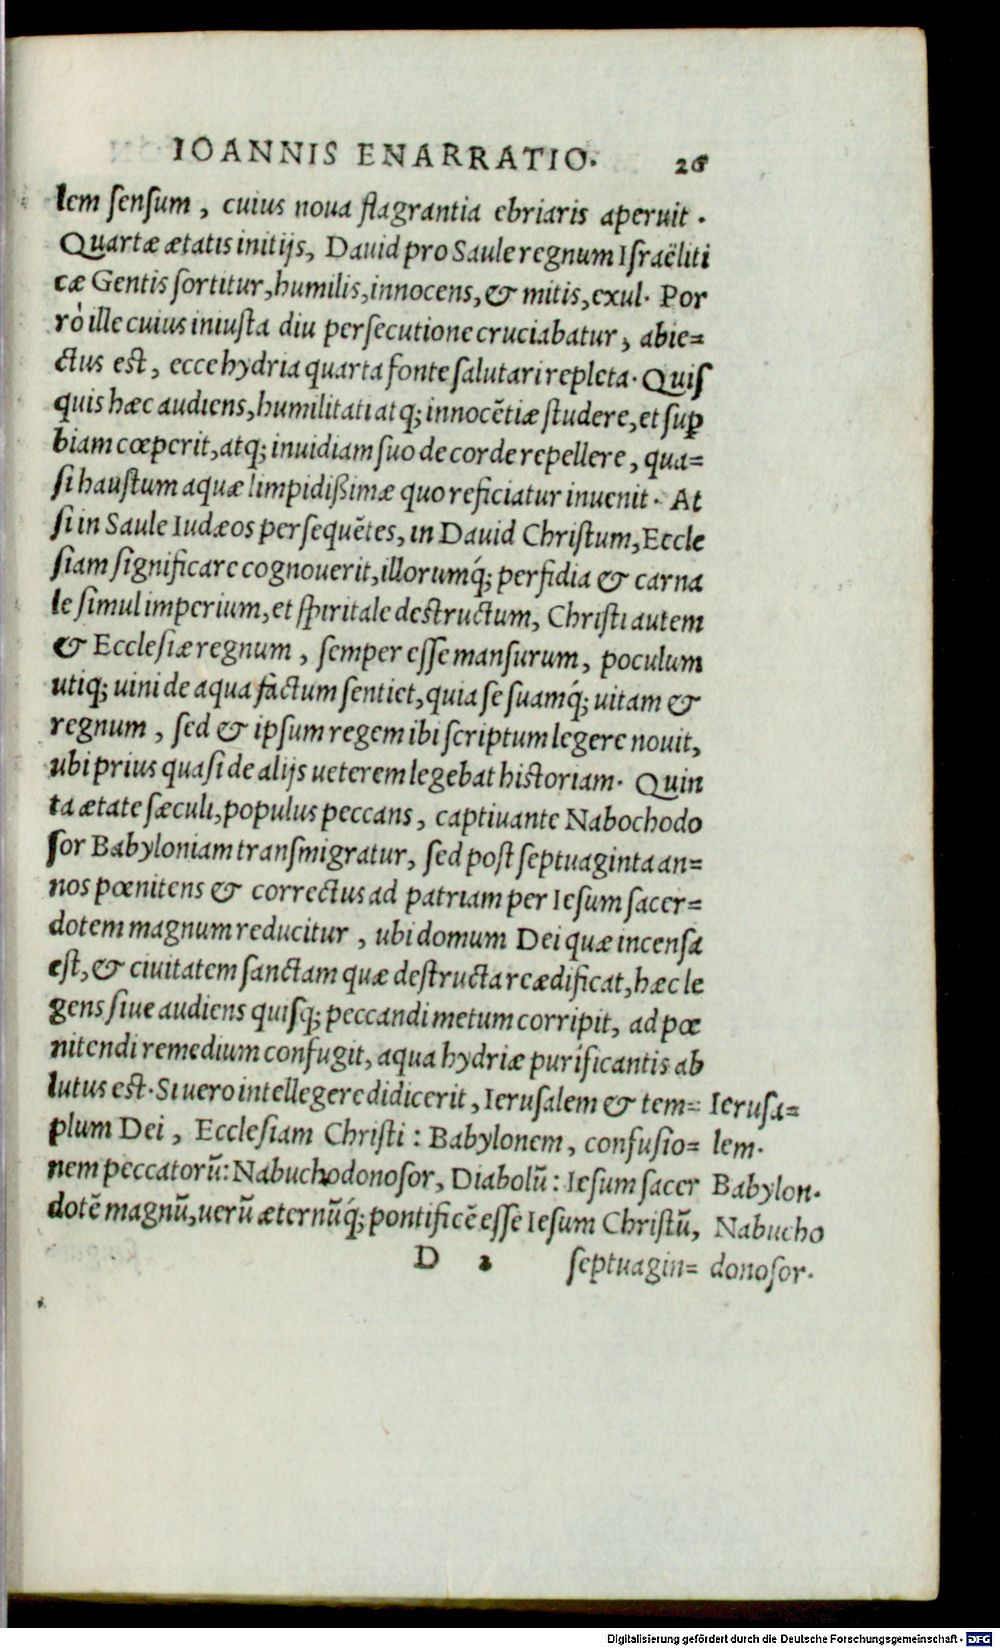 IOANNIS ENARRATIO. 26
lem sensum, cuius noua flagrantia ebriaris aperuit.
Quartæ ætatis initijs, Dauid pro Saule regnum Israëliti
cæ Gentis sortitur, humilis, innocens, & mitis, exul. Por
rò ille cuius iniusta diu persecutione cruciabatur, abie=
ctus est, ecce hydria quarta fonte salutari repleta. Quis
quis hæc audiens, humilitati atq; innocētiæ studere, et suꝑ
biam cœperit, atq; inuidiam suo de corde repellere, qua=
si haustum aquæ limpidißimæ quo reficiatur inuenit. At
si in Saule Iudæos persequētes, in Dauid Christum, Eccle
siam significare cognouerit, illorumq́; perfidia & carna
le simul imperium, et spiritale destructum, Christi autem
& Ecclesiæ regnum, semper esse mansurum, poculum
utiq; uini de aqua factum sentiet, quia se suamq́; uitam &
regnum, sed & ipsum regem ibi scriptum legere nouit,
ubi prius quasi de alijs ueterem legebat historiam. Quin
ta ætate sæculi, populus peccans, captiuante Nabochodo
sor Babyloniam transmigratur, sed post septuaginta an=
nos pœnitens & correctus ad patriam per Iesum sacer=
dotem magnum reducitur, ubi domum Dei quæ incensa
est, & ciuitatem sanctam quæ destructa reædificat, hæc le
gens siue audiens quisq; peccandi metum corripit, ad pœ
nitendi remedium confugit, aqua hydriæ purificantis ab
lutus est. Si uero intellegere didicerit, Ierusalem & tem= Ierusa=
plum Dei, Ecclesiam Christi: Babylonem, confusio= lem.
nem peccatorū: Nabuchodonosor, Diabolū: Iesum sacer Babylon.
dotē magnū, uerū æternūq́; pontificē esse Iesum Christū, Nabucho
D 2 septuagin= donosor.
Digitalisierung gefördert durch die Deutsche Forschungsgemeinschaft - DFG